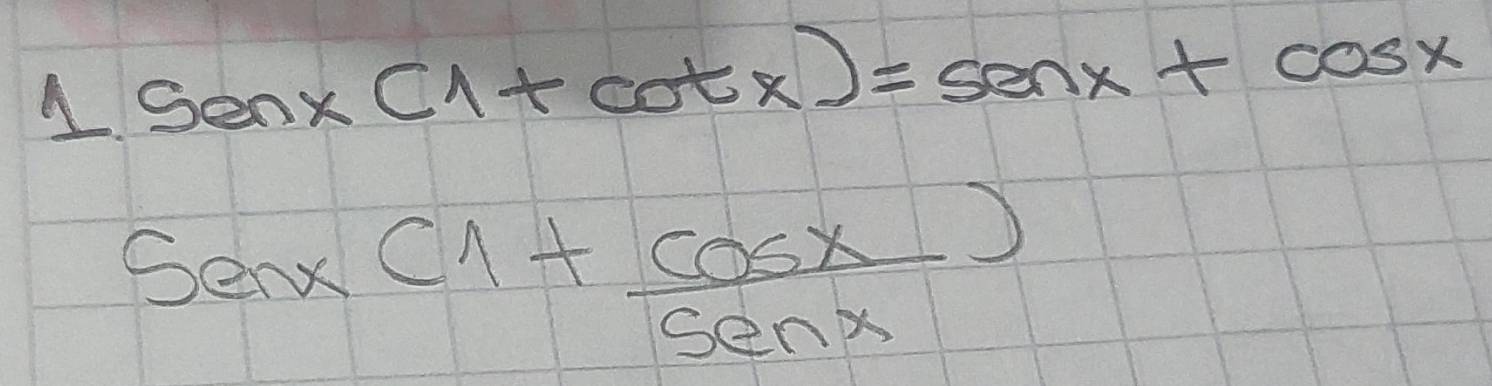 1. Senx (1 + cotx) = senx + cosx
Senx (1 + cosx/senx)